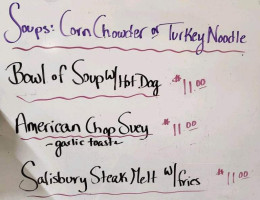 Soups: Corn Chowder or Turkey Noodle
Bowl of Soup w/ Hot Dog $11.00
American Chop Suey $11.00
- garlic toast
Salisbury Steak Melt w/ fries $11.00